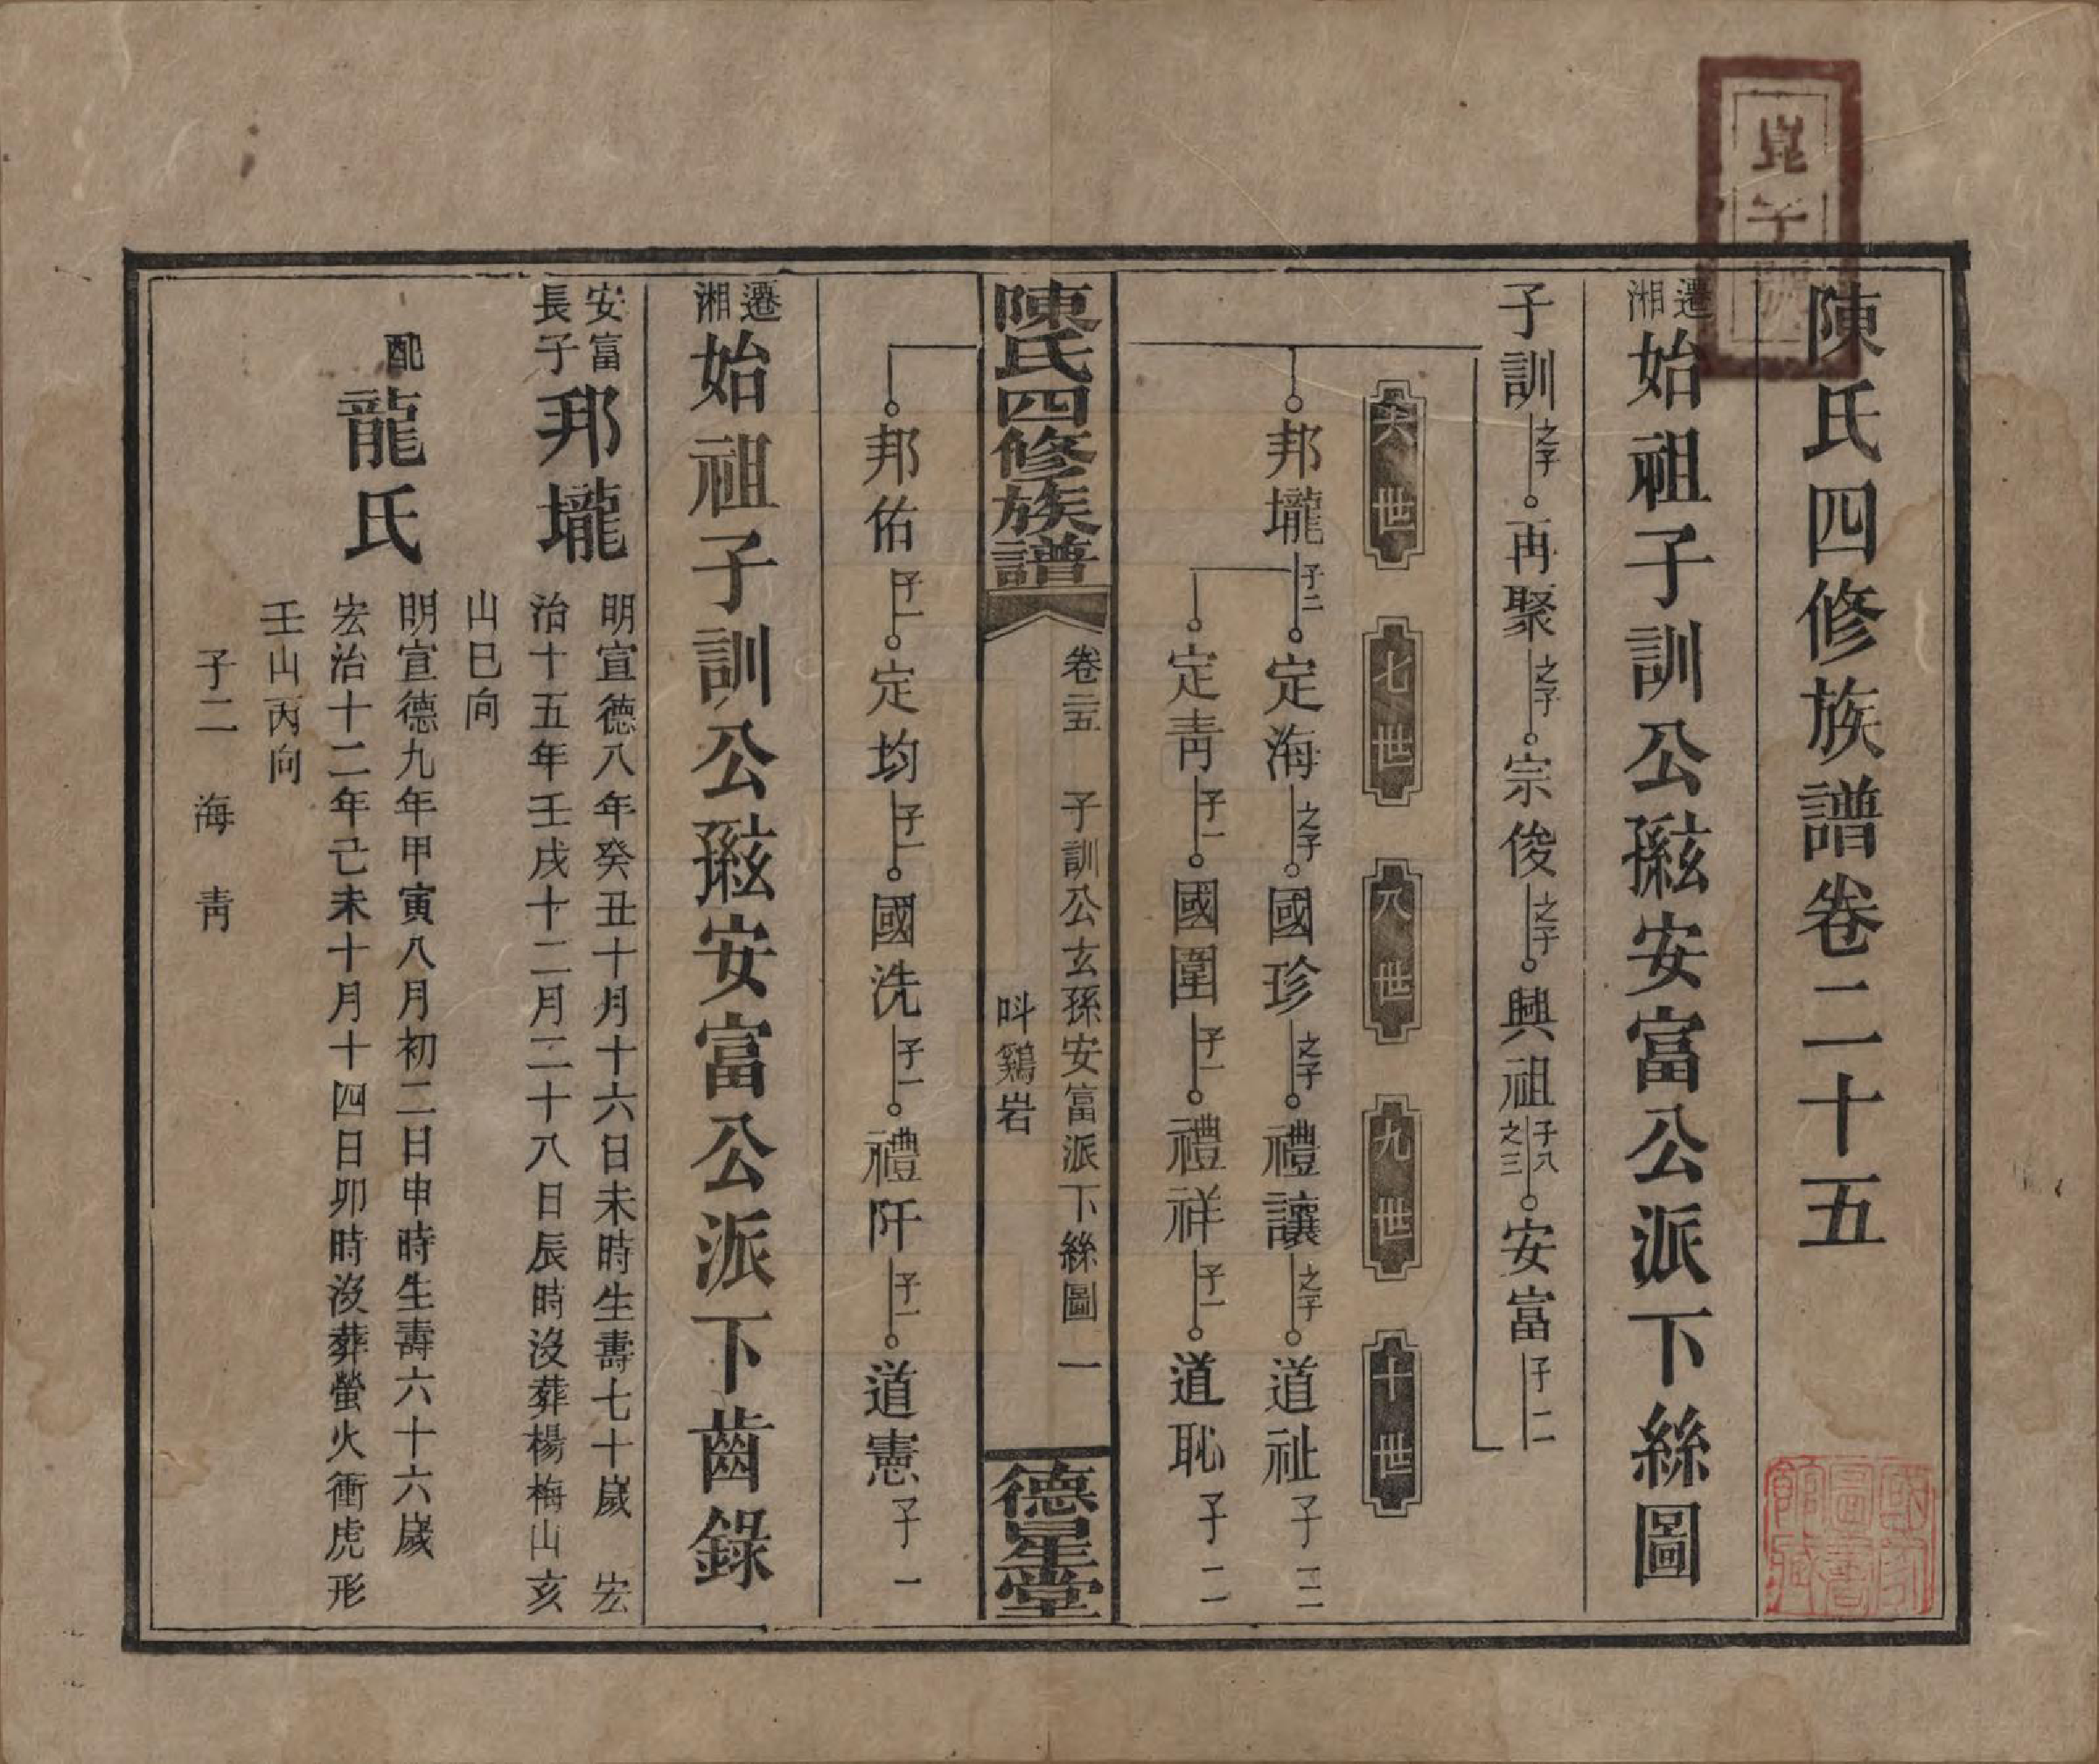 陳氏四修族譜卷二十五
遷湘始祖子訓公玄孫安富公派下絲圖
子訓 之子 再聚 之子 宗俊 之子 興祖 子八之三 安富 子二
六世 七世 八世 九世 十世
邦壠 子二 定海 之子 國珍 之子 禮讓 之子 道祉 子三
定青 子一 國圍 子一 禮祥 子一 道恥 子二
陳氏四修族譜 卷二十五 子訓公玄孫安富派下絲圖 一
呌鷄岩
德星堂
邦佑 子一 定均 子一 國洗 子一 禮阡 子一 道憲 子一
遷湘始祖子訓公玄孫安富公派下齒錄
安富長子邦壠
明宣德八年癸丑十月十六日未時生壽七十歲 宏
治十五年壬戌十二月二十八日辰時沒葬楊梅山亥
山巳向
配龍氏
明宣德九年甲寅八月初二日申時生壽六十六歲
宏治十二年己未十月十四日卯時沒葬螢火衝虎形
壬山丙向
子二 海 青